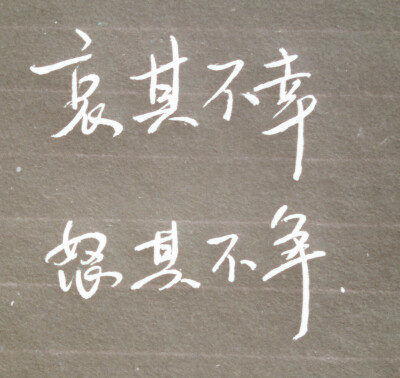 哀其不幸
怒其不争.